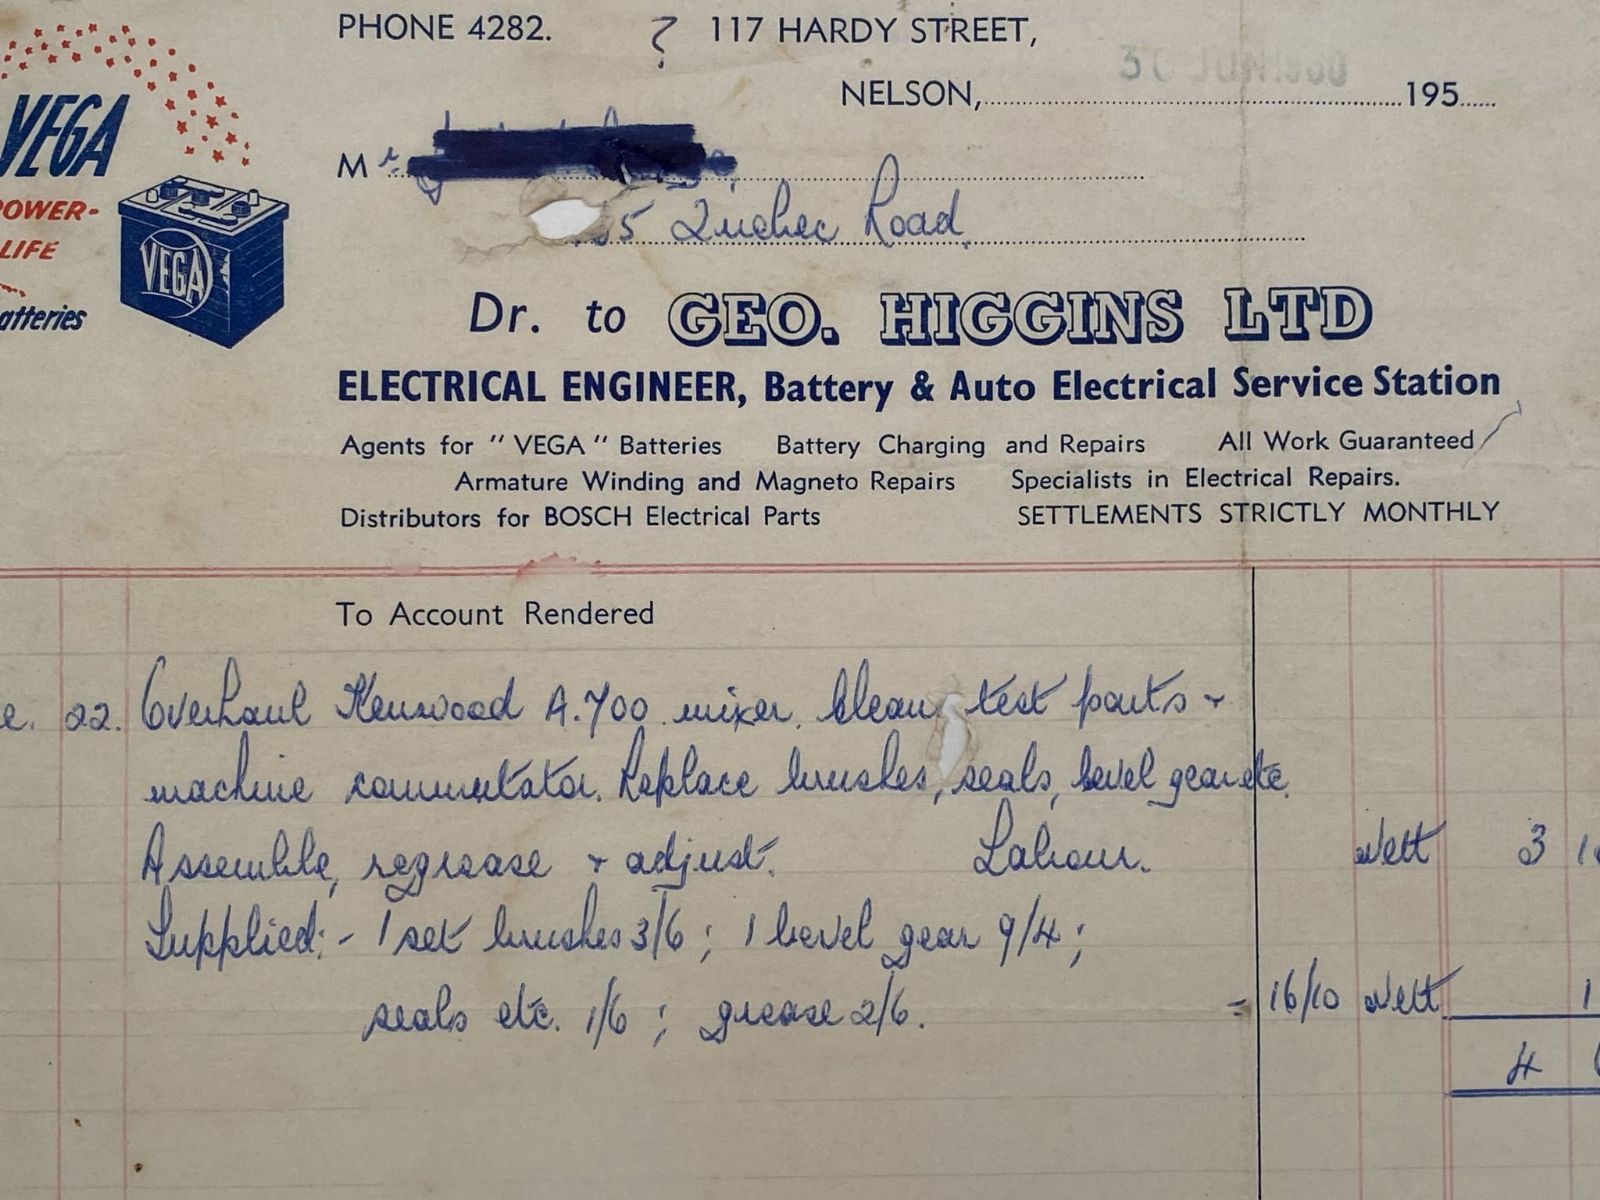 PHONE 4282. ? 117 HARDY STREET,
NELSON, 195
VEGA
POWER-
LIFE
atteries
VEGA
Mr.
5 Quebec Road.
Dr. to GEO. HIGGINS LTD
ELECTRICAL ENGINEER, Battery & Auto Electrical Service Station
Agents for "VEGA" Batteries Battery Charging and Repairs All Work Guaranteed
Armature Winding and Magneto Repairs Specialists in Electrical Repairs.
Distributors for BOSCH Electrical Parts SETTLEMENTS STRICTLY MONTHLY
To Account Rendered
e. 22. Overhaul Kenwood A.700 mixer. Clean, test parts +
machine commutator. Replace brushes, seals, bevel gear etc.
Assemble, regrease + adjust. Labour. Nett 3
Supplied:- 1 set brushes 3/6; 1 bevel gear 9/4;
seals etc. 1/6; grease 2/6. = 16/10 Nett 1
4